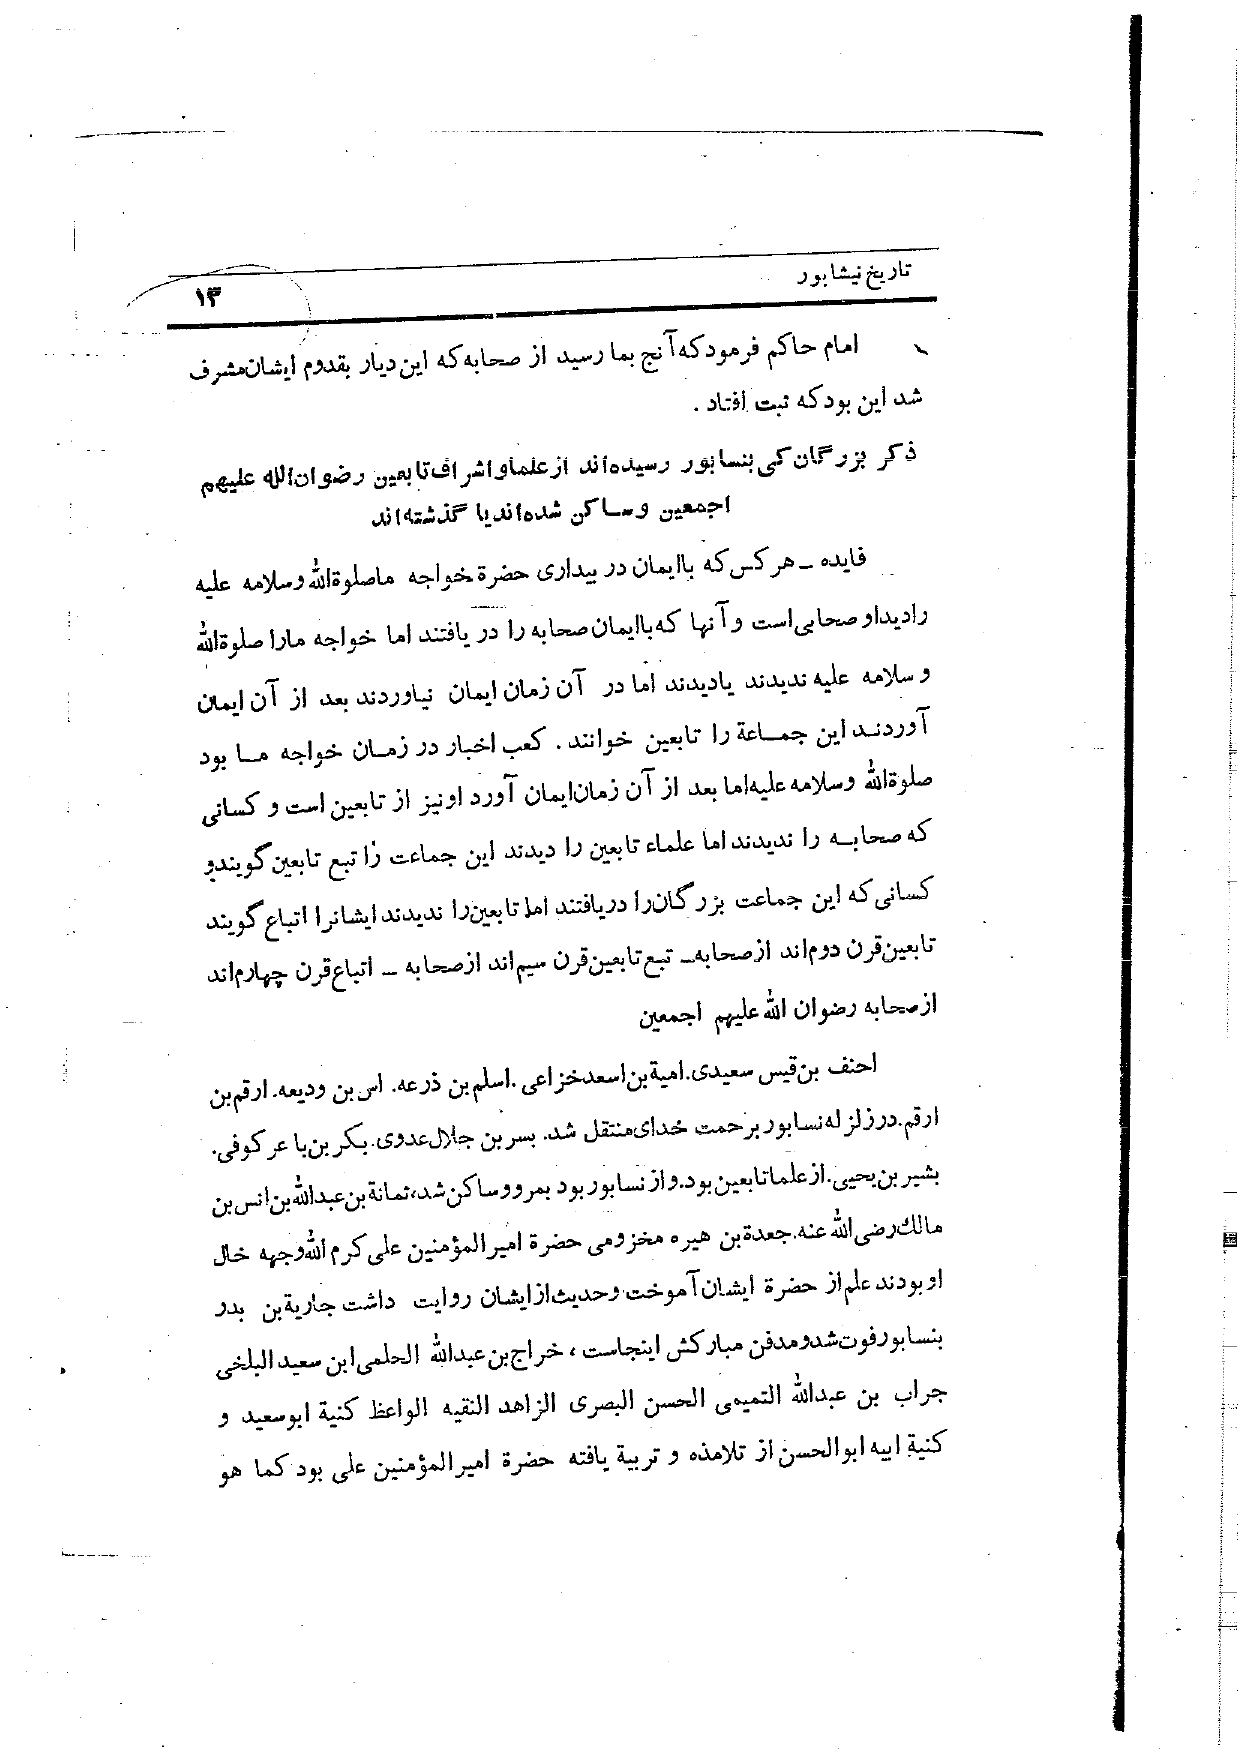 تاریخ نیشابور
۱۳
امام حاکم فرمود که آنچ بما رسید از صحابه که این دیار بقدوم ایشان مشرف
شد این بود که ثبت افتاد .
ذکر بزرگان کی بنسابور رسیده‌اند از علما و اشراف تابعین رضوان الله علیهم
اجمعین و ساکن شده‌اند یا گذشته‌اند
فایده ــ هر کس که باایمان در بیداری حضرة خواجه ما صلوة الله و سلامه علیه
را دید او صحابی است و آنها که باایمان صحابه را در یافتند اما خواجه ما را صلوة الله
و سلامه علیه ندیدند یا دیدند اما در آن زمان ایمان نیاوردند بعد از آن ایمان
آوردند این جماعة را تابعین خوانند . کعب اخبار در زمان خواجه ما بود
صلوة الله و سلامه علیه اما بعد از آن زمان ایمان آورد او نیز از تابعین است و کسانی
که صحابه را ندیدند اما علماء تابعین را دیدند این جماعت را تبع تابعین گویند و
کسانی که این جماعت بزرگان را دریافتند اما تابعین را ندیدند ایشانرا اتباع گویند
تابعین قرن دوم‌اند از صحابه ــ تبع تابعین قرن سیم‌اند از صحابه ــ اتباع قرن چهارم‌اند
از صحابه رضوان الله علیهم اجمعین
احنف بن قیس سعیدی. امیة بن اسعد خزاعی . اسلم بن ذرعه. اس بن ودیعه. ارقم بن
ارقم. در زلزله نسابور برحمت خدای منتقل شد. بسر بن جلال عدوی. بکر بن با عر کوفی.
بشیر بن یحیی. از علما تابعین بود. و از نسابور بود بمرو و ساکن شد، ثمانة بن عبدالله بن انس بن
مالك رضی الله عنه. جعدة بن هیره مخزومی حضرة امیرالمؤمنین علی کرم الله وجهه خال
او بودند علم از حضرة ایشان آموخت و حدیث از ایشان روایت داشت جاریة بن بدر
بنسابور فوت شد و مدفن مبارکش اینجاست ، خراج بن عبدالله الحلمی ابن سعید البلخی
جراب بن عبدالله التمیمی الحسن البصری الزاهد النقیه الواعظ کنیة ابو سعید و
کنیة ابیه ابوالحسن از تلامذه و تربیة یافته حضرة امیرالمؤمنین علی بود کما هو